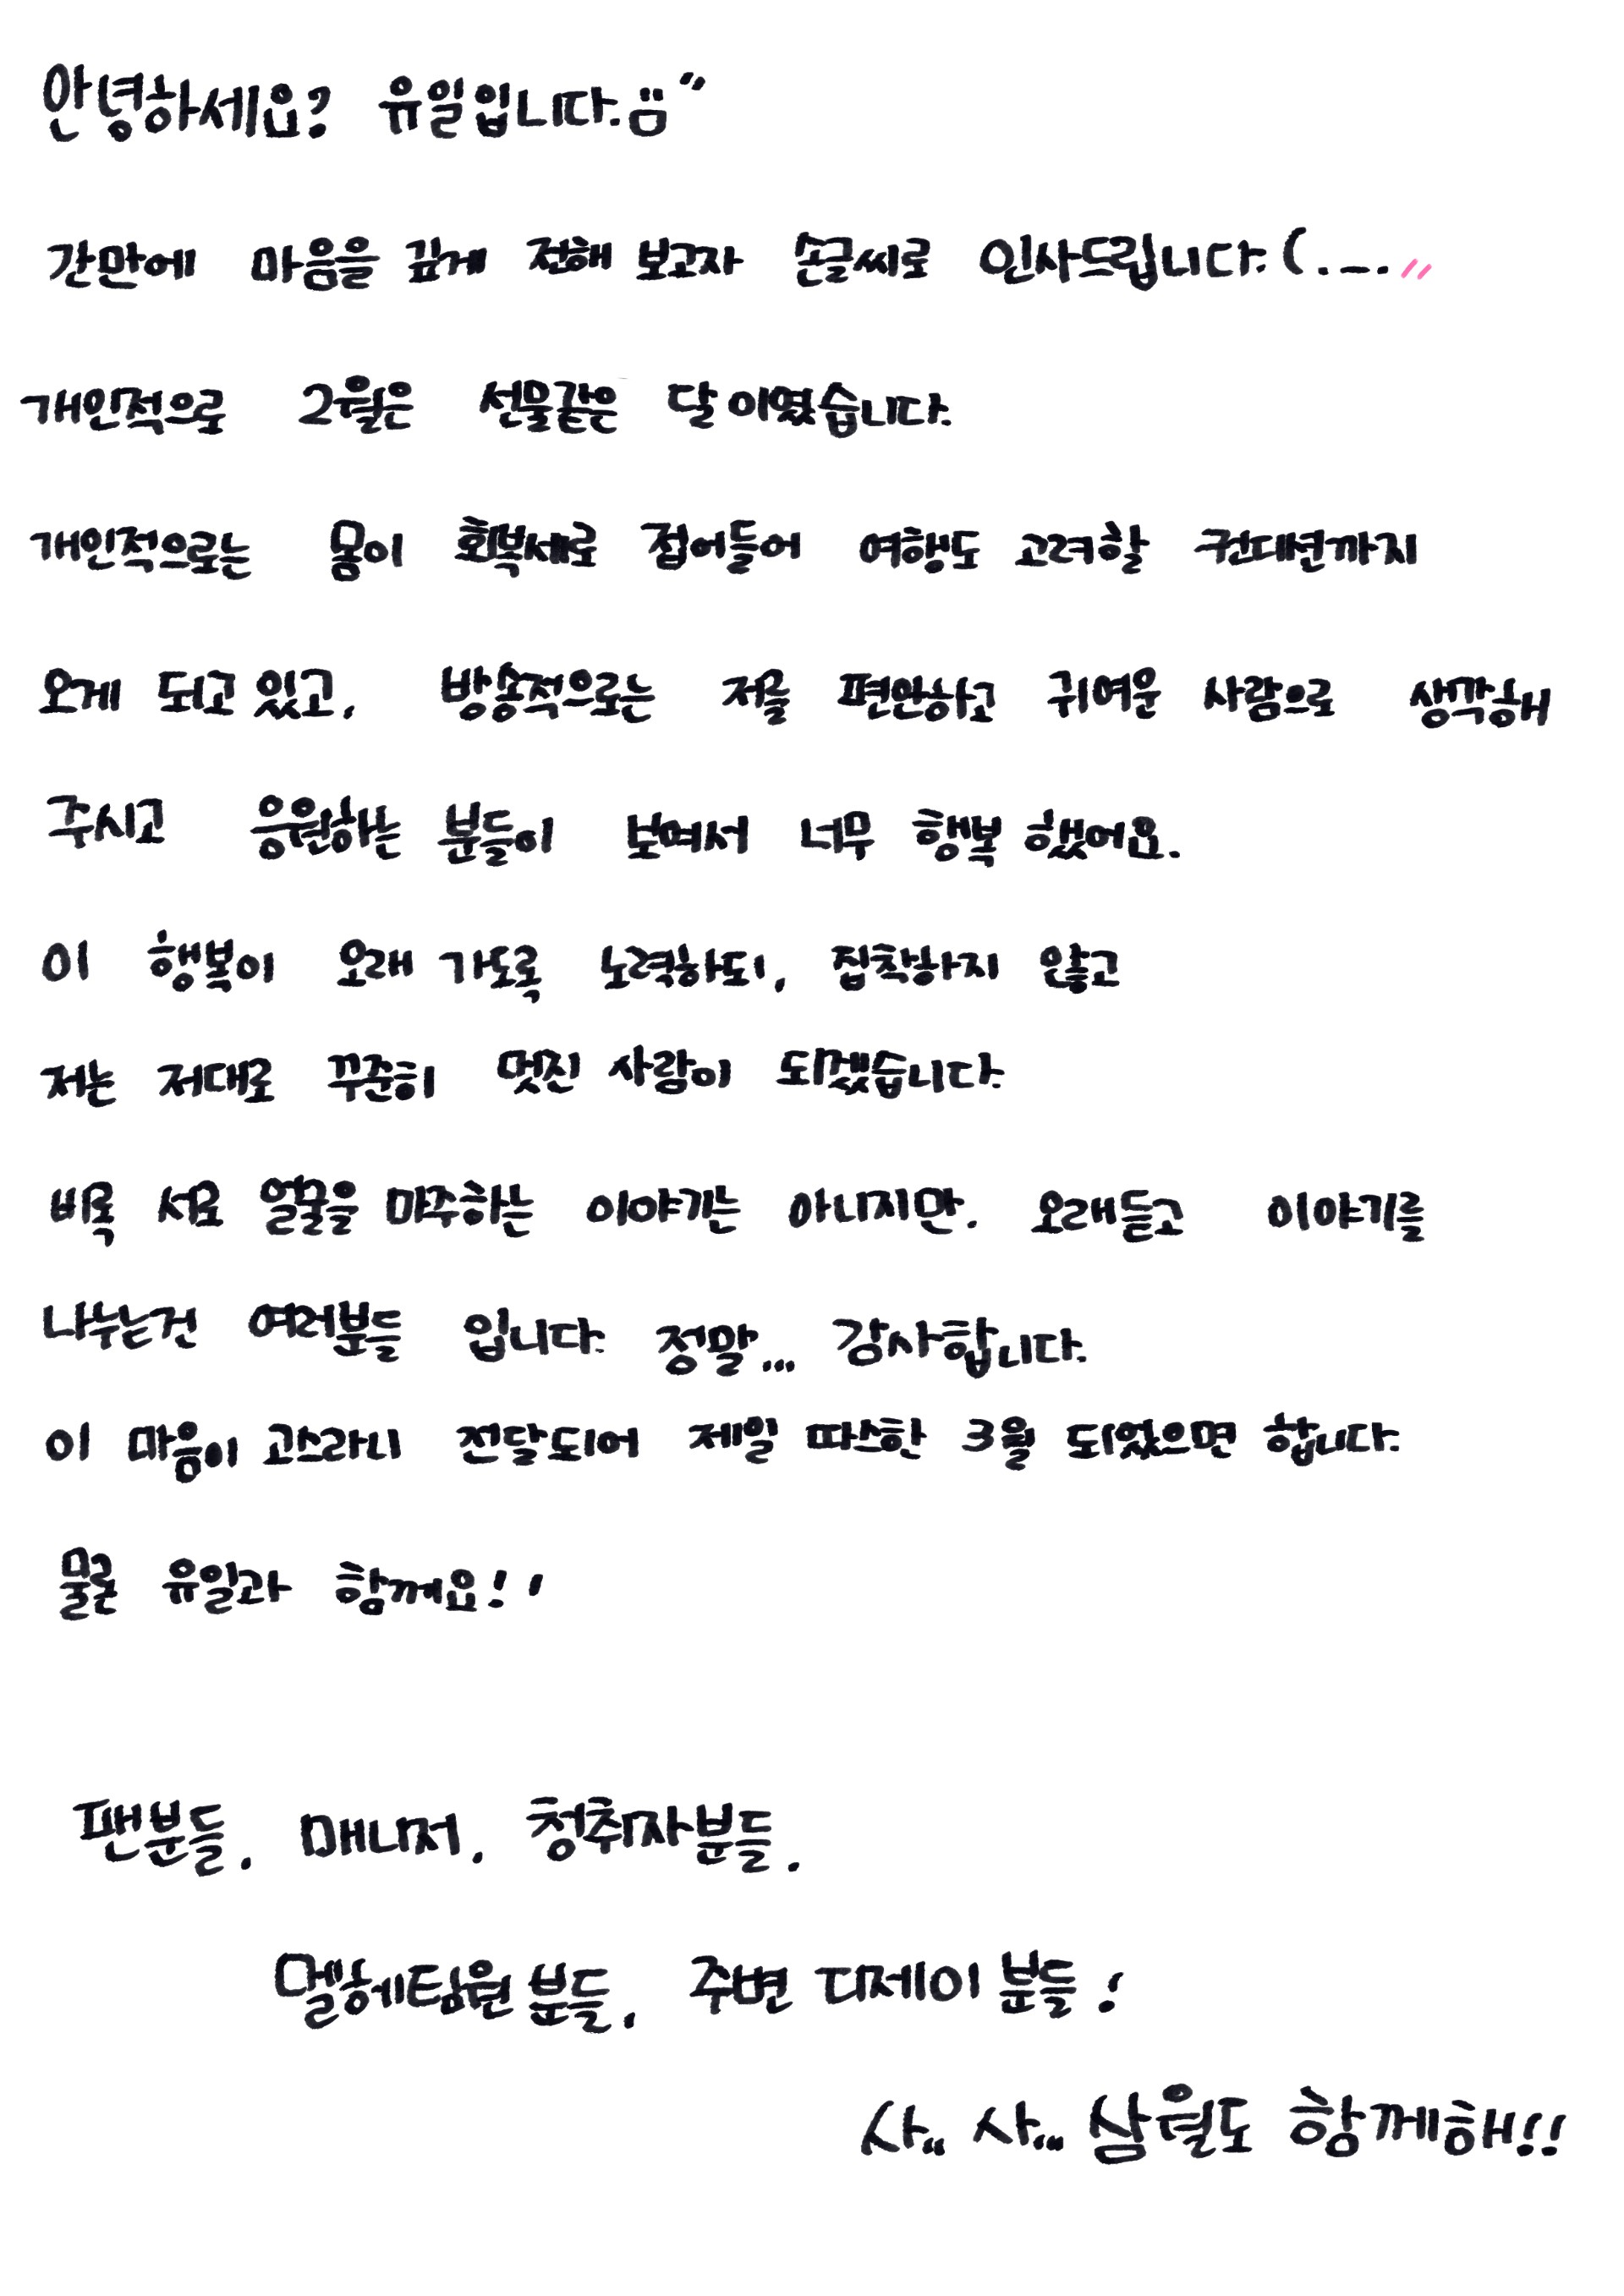 안녕하세요? 유일입니다.
간만에 마음을 깊게 전해 보고자 손글씨로 인사드립니다. (._.
개인적으로 2월은 선물같은 달이였습니다.
개인적으로는 몸이 회복세로 접어들어 여행도 고려할 컨디션까지
오게 되고 있고, 방송적으로는 저를 편안하고 귀여운 사람으로 생각해
주시고 응원하는 분들이 보여서 너무 행복 했어요.
이 행복이 오래 가도록 노력하되, 집착하지 않고
저는 저대로 꾸준히 멋진 사람이 되겠습니다.
비록 서로 얼굴을 마주하는 이야기는 아니지만. 오래듣고 이야기를
나누는건 여러분들 입니다. 정말... 감사합니다.
이 마음이 고스라니 전달되어 제일 따스한 3월 되었으면 합니다.
물론 유일과 함께요!'
팬분들, 매니저, 청취자분들,
멜헤팀원 분들, 주변 디제이 분들!
사.. 사... 삼월도 함께해!!